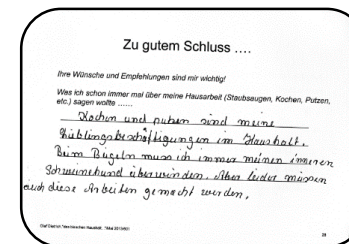 Zu gutem Schluss ....
Ihre Wünsche und Empfehlungen sind mir wichtig!
Was ich schon immer mal über meine Hausarbeit (Staubsaugen, Kochen, Putzen,
etc.) sagen wollte ......
Kochen und putzen sind meine
Lieblingsbeschäftigungen im Haushalt.
Beim Bügeln muss ich immer meinen inneren
Schweinehund überwinden. Aber leider müssen
auch diese Arbeiten gemacht werden.